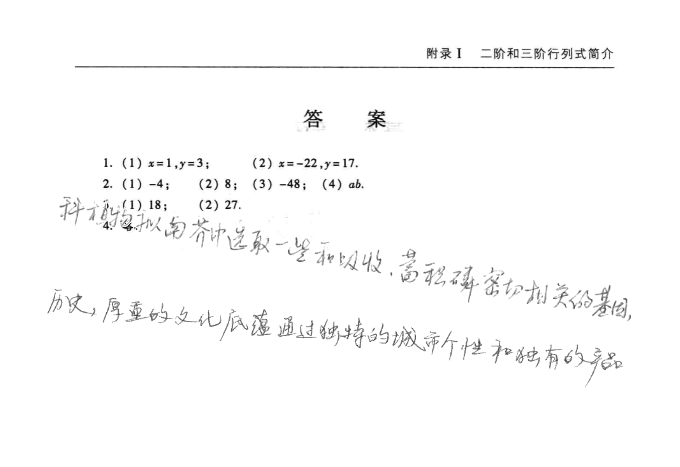 附录Ⅰ 二阶和三阶行列式简介
答 案
1. (1) x=1,y=3; (2) x=-22,y=17.
2. (1) -4; (2) 8; (3) -48; (4) ab.
(1) 18; (2) 27.
4.
科植物拟南芥中选取一些和吸收、蓄积磷密切相关的基因,
历史,厚重的文化底蕴通过独特的城市个性和独有的产品